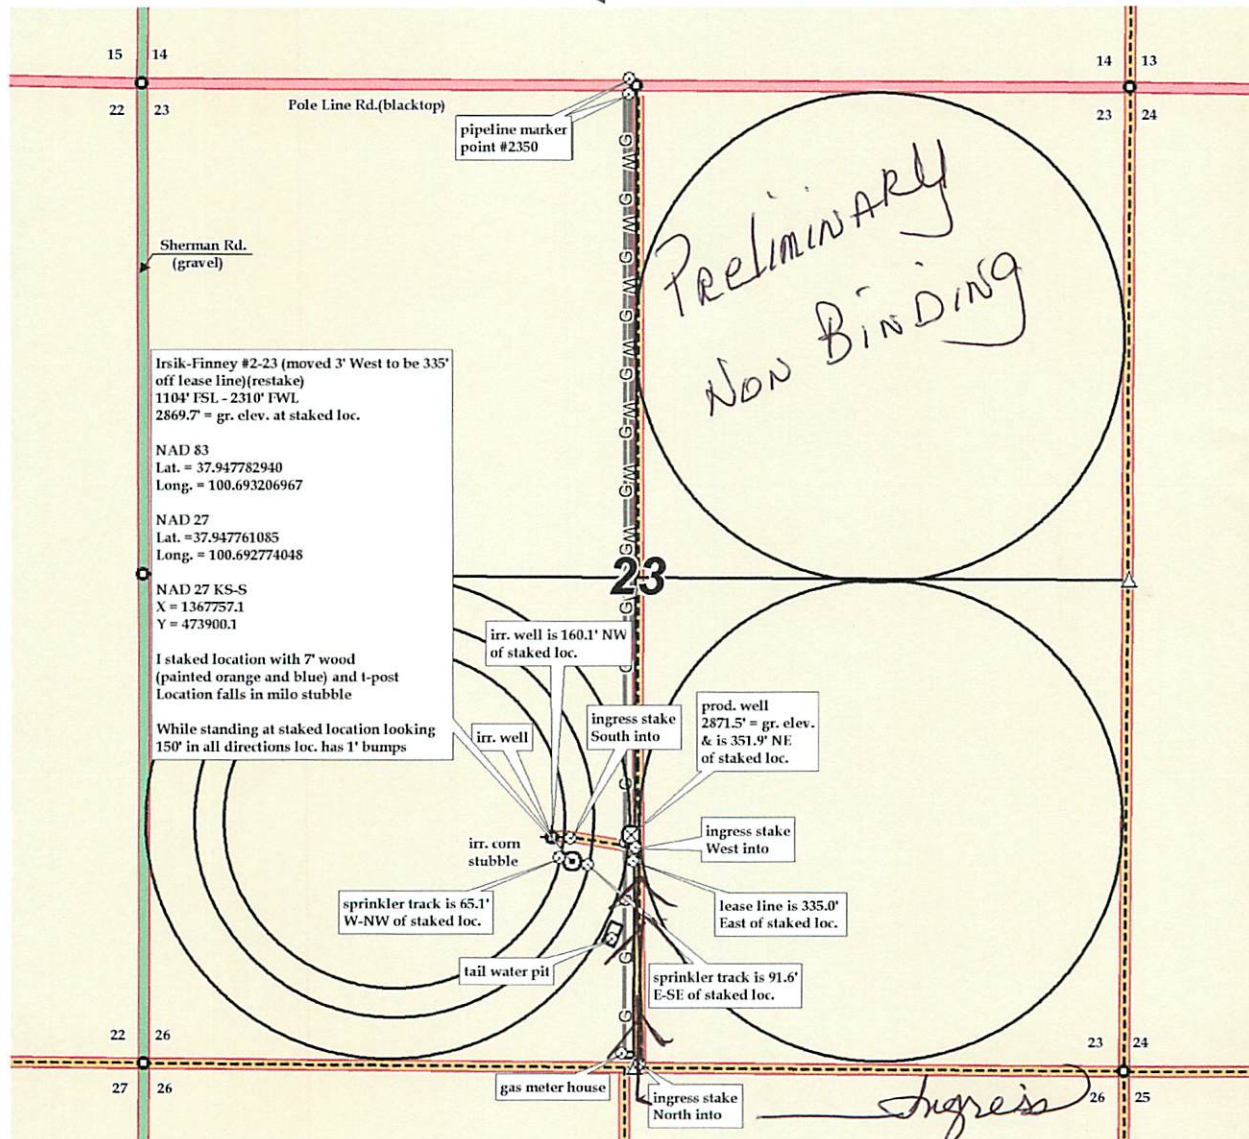 15 14
14 13
22 23
Pole Line Rd.(blacktop)
23 24
pipeline marker
point #2350
Preliminary
Non Binding
Sherman Rd.
(gravel)
Irsik-Finney #2-23 (moved 3' West to be 335'
off lease line)(restake)
1104' FSL - 2310' FWL
2869.7' = gr. elev. at staked loc.
NAD 83
Lat. = 37.947782940
Long. = 100.693206967
NAD 27
Lat. =37.947761085
Long. = 100.692774048
NAD 27 KS-S
X = 1367757.1
Y = 473900.1
I staked location with 7' wood
(painted orange and blue) and t-post
Location falls in milo stubble
While standing at staked location looking
150' in all directions loc. has 1' bumps
G W G W G W G W G W G W G W G
23
irr. well is 160.1' NW
of staked loc.
irr. well
ingress stake
South into
prod. well
2871.5' = gr. elev.
& is 351.9' NE
of staked loc.
irr. corn
stubble
ingress stake
West into
sprinkler track is 65.1'
W-NW of staked loc.
lease line is 335.0'
East of staked loc.
tail water pit
sprinkler track is 91.6'
E-SE of staked loc.
G
G
G
22 26
23 24
27 26
gas meter house
ingress stake
North into
Ingress
26 25